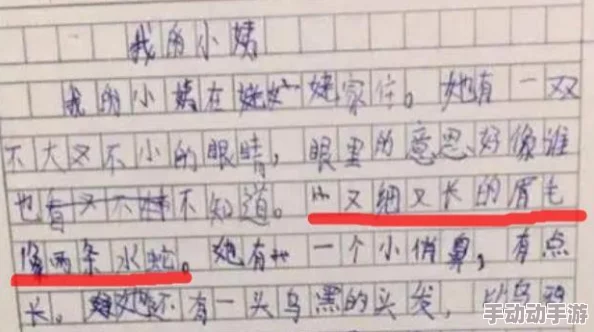 我的小姨
我的小姨在姥姥家住。她有一双
不大又不小的眼睛，眼里的意思好像谁
也不知道。又细又长的眉毛
像两条水蛇。她有一个小俏鼻，有点
长。她还有一头乌黑的头发，
手动动手游